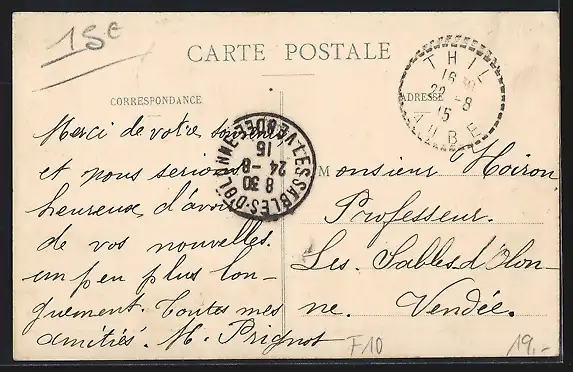 15€
CARTE POSTALE
CORRESPONDANCE
ADRESSE
THIL
16
22-8
15
AUBE
LES SABLES-D'OLONNE
VENDÉE
8 30
24-8
15
Merci de votre souvenir
et nous serions
heureux d'avoir
de vos nouvelles
un peu plus lon-
guement. Toutes mes
amitiés. M. Prignot
Monsieur Hoiron
Professeur.
Les Sables d'Olon-
ne. Vendée.
F10
19,-